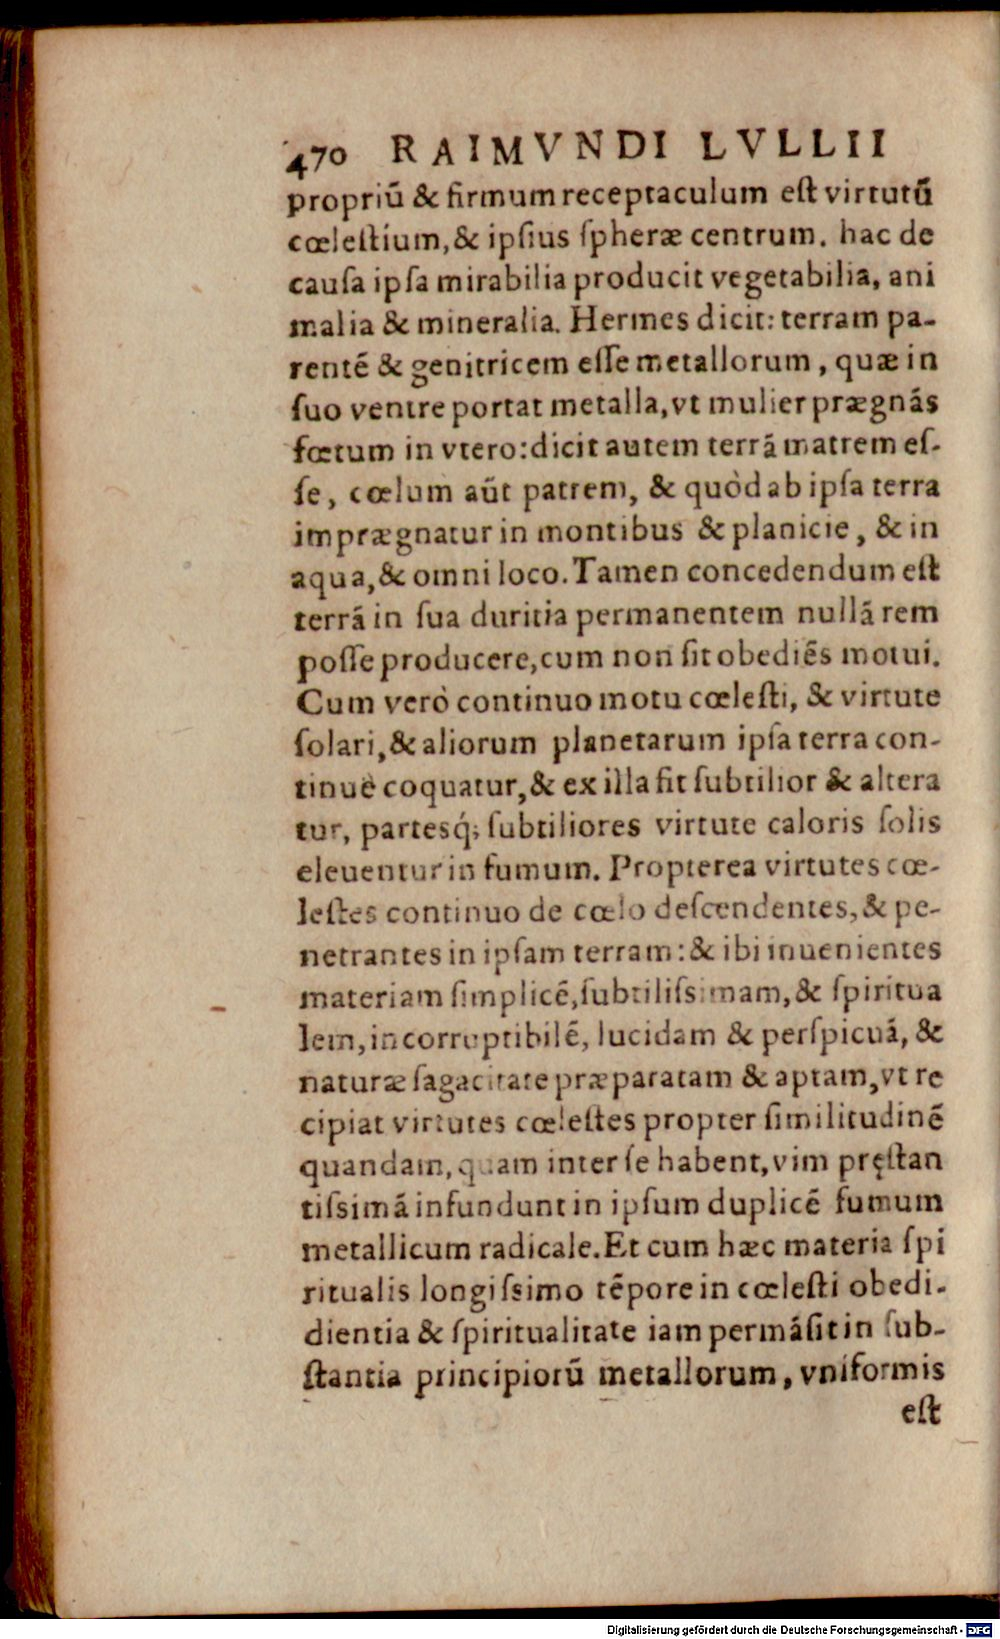 470 RAIMVNDI LVLLII
propriũ & firmum receptaculum est virtutũ
cœlestium, & ipsius spheræ centrum. hac de
causa ipsa mirabilia producit vegetabilia, ani
malia & mineralia. Hermes dicit: terram pa-
rentẽ & genitricem esse metallorum, quæ in
suo ventre portat metalla, vt mulier prægnãs
fœtum in vtero: dicit autem terrã matrem es-
se, cœlum aũt patrem, & quòd ab ipsa terra
imprægnatur in montibus & planicie, & in
aqua, & omni loco. Tamen concedendum est
terrã in sua duritia permanentem nullã rem
posse producere, cum non sit obediẽs motui.
Cum verò continuo motu cœlesti, & virtute
solari, & aliorum planetarum ipsa terra con-
tinuè coquatur, & ex illa fit subtilior & altera
tur, partesq́; subtiliores virtute caloris solis
eleuentur in fumum. Propterea virtutes cœ-
lestes continuo de cœlo descendentes, & pe-
netrantes in ipsam terram: & ibi inuenientes
materiam simplicẽ, subtilissimam, & spiritua
lem, incorruptibilẽ, lucidam & perspicuã, &
naturæ sagacitate præparatam & aptam, vt re
cipiat virtutes cœlestes propter similitudinẽ
quandam, quam inter se habent, vim pręstan
tissimã infundunt in ipsum duplicẽ fumum
metallicum radicale. Et cum hæc materia spi
ritualis longissimo tẽpore in cœlesti obedi-
dientia & spiritualitate iam permãsit in sub-
stantia principiorũ metallorum, vniformis
est
Digitalisierung gefördert durch die Deutsche Forschungsgemeinschaft - DFG